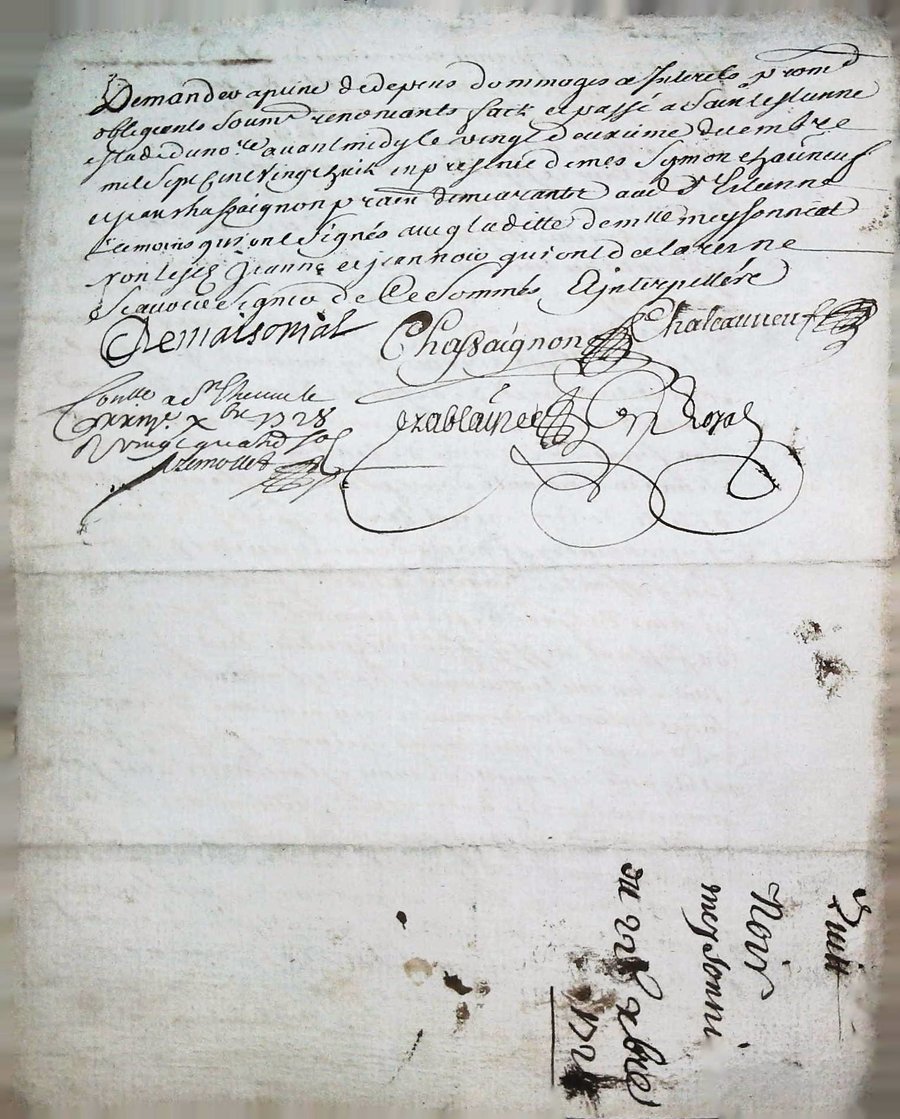 Demander a peine de depens dommages et Interets prom
obligeants soum renonceants fait et passé a Saint estienne
estude du no.re avant midy le vingt deuxieme decembre
mil Sept Cent vingt huit en presence de mes Symon chauneuf
et jean chassaignon pratn demeurants aud St Etienne
temoins qui ont signés avec laditte demlle meyssonial
non lesd Jeanne et jean noir qui ont declare ne
Scavoir Signer de Ce Sommés Et interpellés
Demaisonial Chassaignon Chateauneuf
Conlle a St Etienne le
xbre 1728
vingt quatre sols
Royal
quitt
Noir
meyssoni
xbre
172